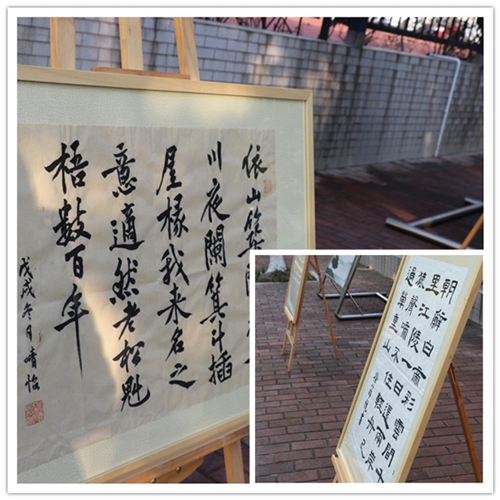 依山筑
川夜闌箕斗插
屋椽我来名之
意適然老松魁
梧數百年
戊戌冬月晴怡
朝辭白帝彩雲間千
里江陵一日還兩岸
猿聲啼不住輕舟已
過萬重山